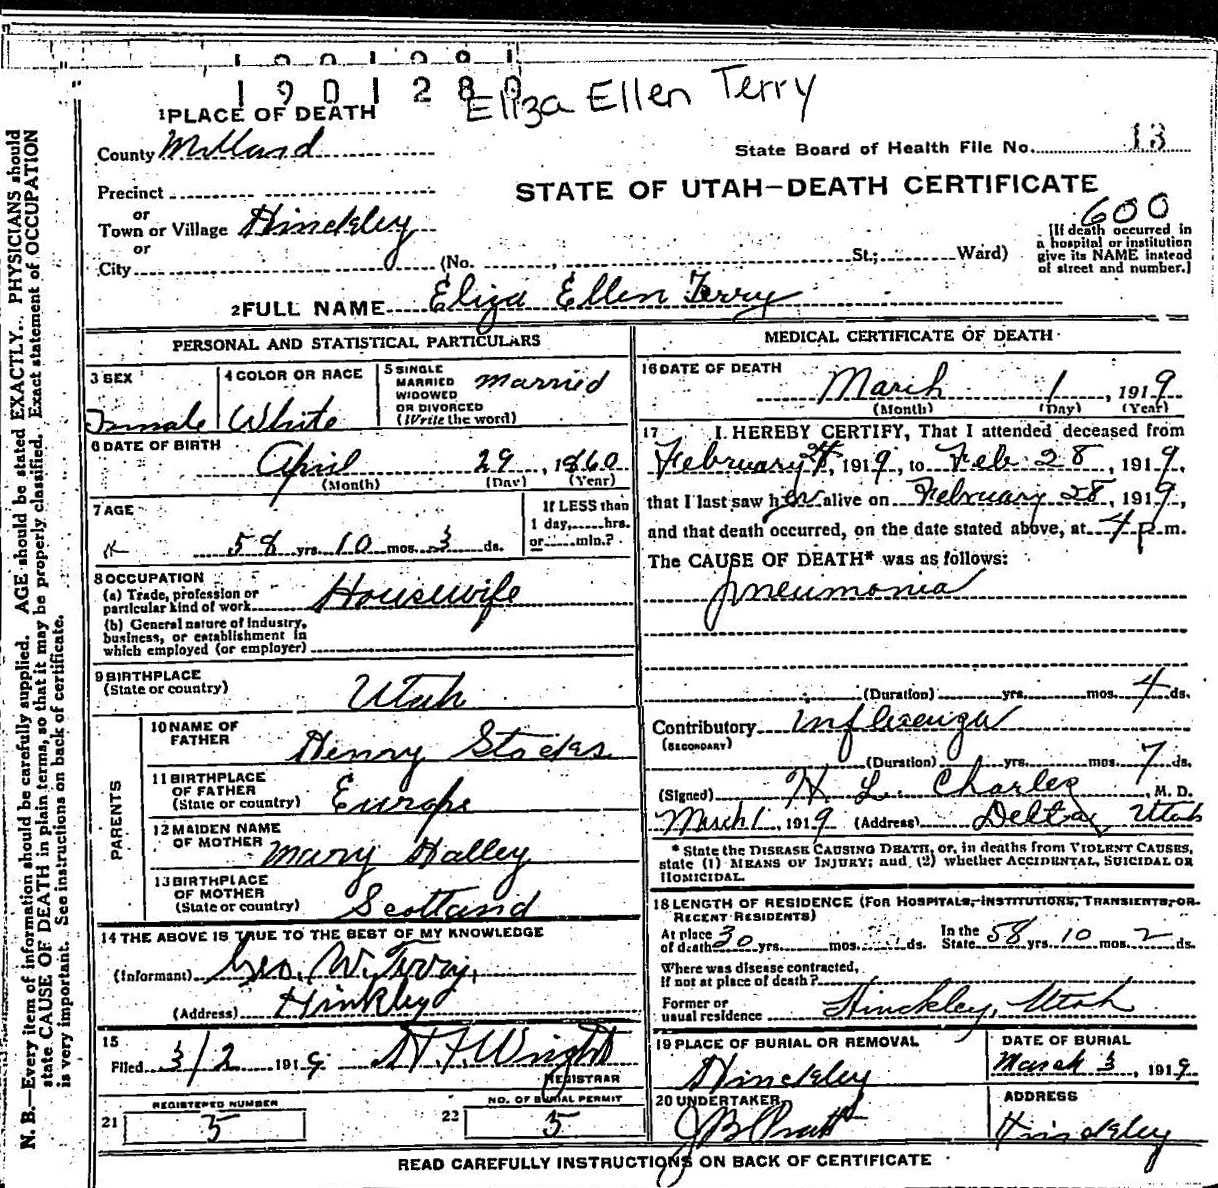 1901280
Eliza Ellen Terry
1 PLACE OF DEATH
County Millard
State Board of Health File No. 13
Precinct
STATE OF UTAH—DEATH CERTIFICATE
or
Town or Village Hinckley
600
or
[If death occurred in a hospital or institution give its NAME instead of street and number.]
City (No. , St.; Ward)
2 FULL NAME Eliza Ellen Terry
PERSONAL AND STATISTICAL PARTICULARS
3 SEX
Female
4 COLOR OR RACE
White
5 SINGLE
MARRIED
WIDOWED
OR DIVORCED
(Write the word)
Married
6 DATE OF BIRTH
April 29, 1860
(Month) (Day) (Year)
7 AGE
58 yrs. 10 mos. 3 ds.
If LESS than
1 day, hrs.
or min.?
8 OCCUPATION
(a) Trade, profession or
particular kind of work Housewife
(b) General nature of industry,
business, or establishment in
which employed (or employer)
9 BIRTHPLACE
(State or country) Utah
PARENTS
10 NAME OF
FATHER Henry Stocks
11 BIRTHPLACE
OF FATHER
(State or country) Europe
12 MAIDEN NAME
OF MOTHER Mary Halley
13 BIRTHPLACE
OF MOTHER
(State or country) Scotland
14 THE ABOVE IS TRUE TO THE BEST OF MY KNOWLEDGE
(Informant) Geo. W. Terry,
(Address) Hinkley
15
Filed 3/2 1919 H. F. Wright
REGISTRAR
REGISTERED NUMBER
21 5
NO. OF BURIAL PERMIT
22 5
MEDICAL CERTIFICATE OF DEATH
16 DATE OF DEATH
March 1, 1919
(Month) (Day) (Year)
17 I HEREBY CERTIFY, That I attended deceased from
February 24, 1919, to Feb 28, 1919,
that I last saw her alive on February 28, 1919,
and that death occurred, on the date stated above, at 4 p. m.
The CAUSE OF DEATH* was as follows:
pneumonia
(Duration) yrs. mos. 4 ds.
Contributory influenza
(SECONDARY)
(Duration) yrs. mos. 7 ds.
(Signed) H L. Charles, M. D.
March 1, 1919 (Address) Delta, Utah
* State the DISEASE CAUSING DEATH, or, in deaths from VIOLENT CAUSES,
state (1) MEANS OF INJURY; and (2) whether ACCIDENTAL, SUICIDAL OR
HOMICIDAL.
18 LENGTH OF RESIDENCE (FOR HOSPITALS, INSTITUTIONS, TRANSIENTS, OR
RECENT RESIDENTS)
At place
of death 30 yrs. mos. ds. In the State 58 yrs. 10 mos. 2 ds.
Where was disease contracted,
if not at place of death?
Former or
usual residence Hinckley, Utah
19 PLACE OF BURIAL OR REMOVAL
Hinckley
DATE OF BURIAL
March 3, 1919
20 UNDERTAKER
J B Pratt
ADDRESS
Hinckley
READ CAREFULLY INSTRUCTIONS ON BACK OF CERTIFICATE
N. B.—Every item of information should be carefully supplied. AGE should be stated EXACTLY. PHYSICIANS should
state CAUSE OF DEATH in plain terms, so that it may be properly classified. Exact statement of OCCUPATION
is very important. See instructions on back of certificate.